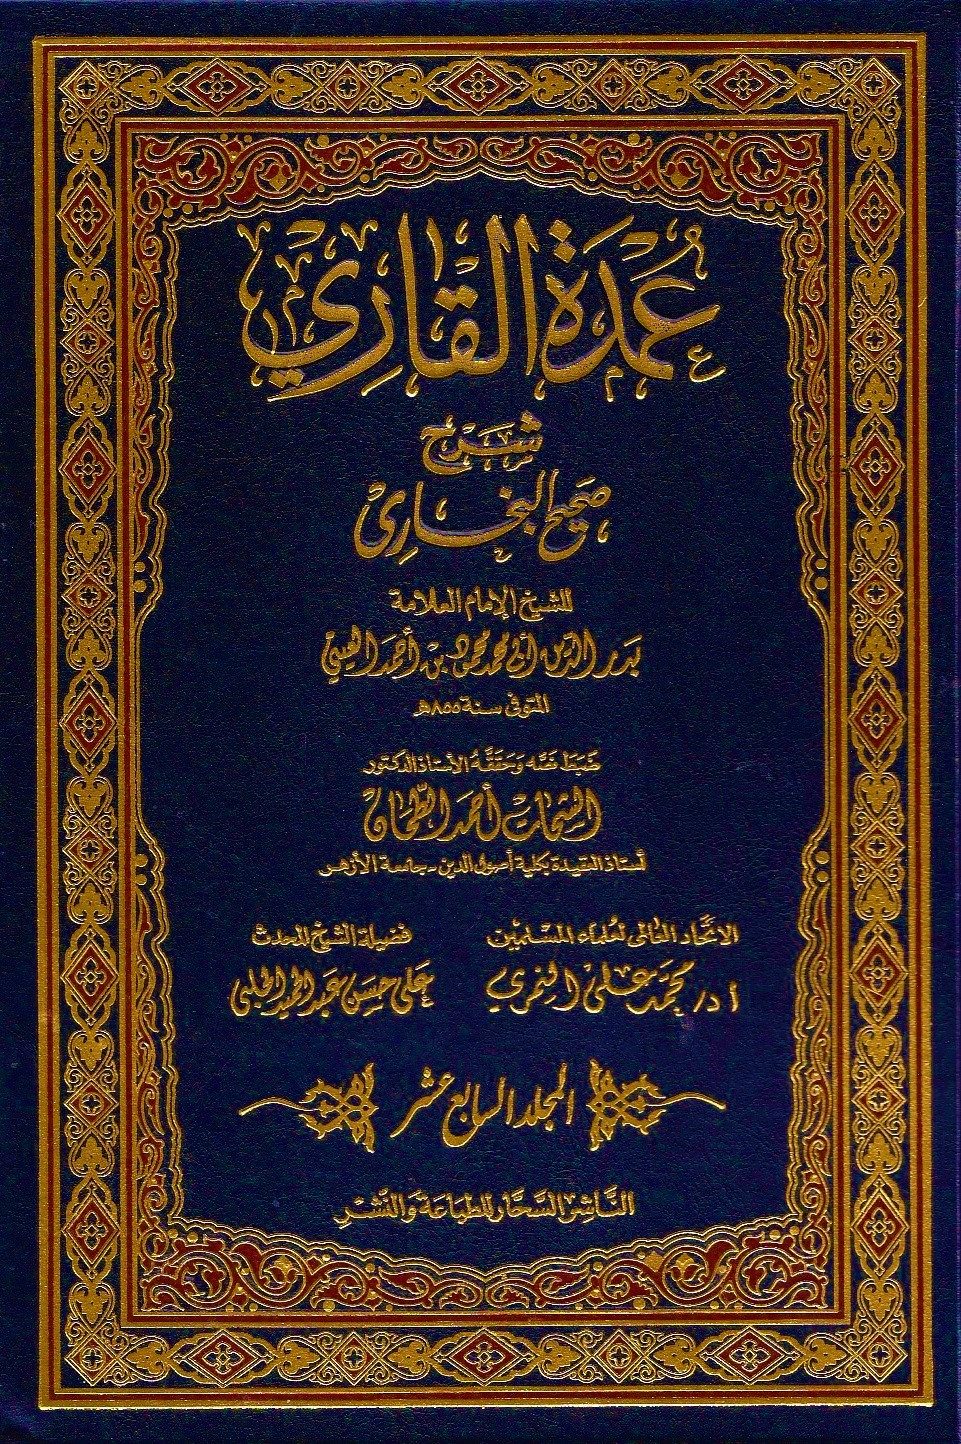 عُمدَةُ القَارِي
شَرْح
صَحِيحِ البُخَارِي
للشيخ الإمام العلامة
بدر الدين أبي محمد محمود بن أحمد العيني
المتوفى سنة ٨٥٥هـ
ضَبَط نصّه وَحَقَّقَهُ الأستاذ الدكتور
الشحات أحمد الطحان
أستاذ العقيدة بكلية أصول الدين - جامعة الأزهر
الاتحاد العالمي لعلماء المسلمين
أ.د/ محمد علي النمري
فضيلة الشيخ المحدث
علي حسن عبد الحميد الحلبي
المجلد السابع عشر
النَّاشِر السَّحَّار للطِّبَاعَة وَالنَّشْر